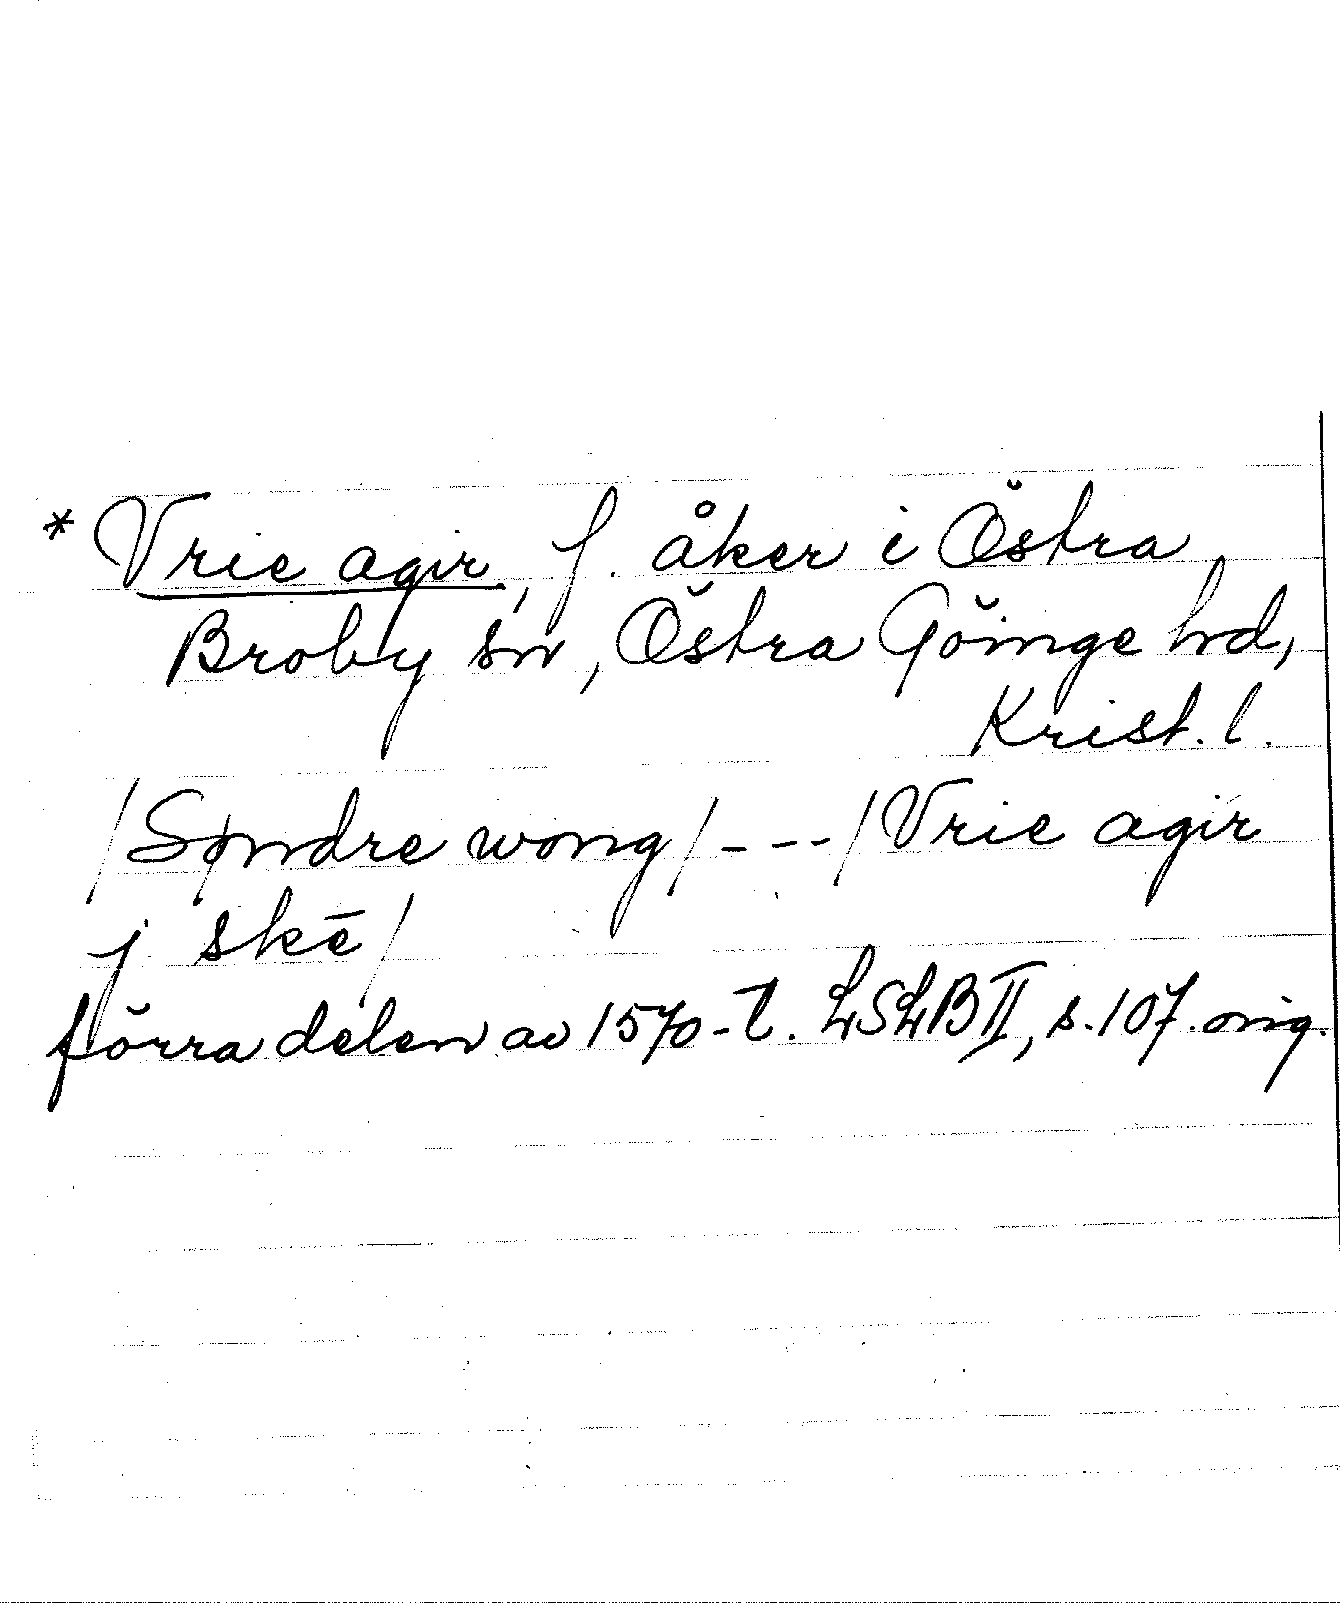 * Vrie agir, f. åker i Östra
Broby sn, Östra Göinge hd,
Krist. l.
/Søndre wong/---/Vrie agir
j skē/
förra delen av 1570-t. LSLB II, s. 107. orig.